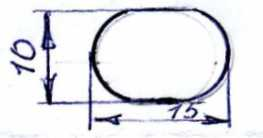 10
15